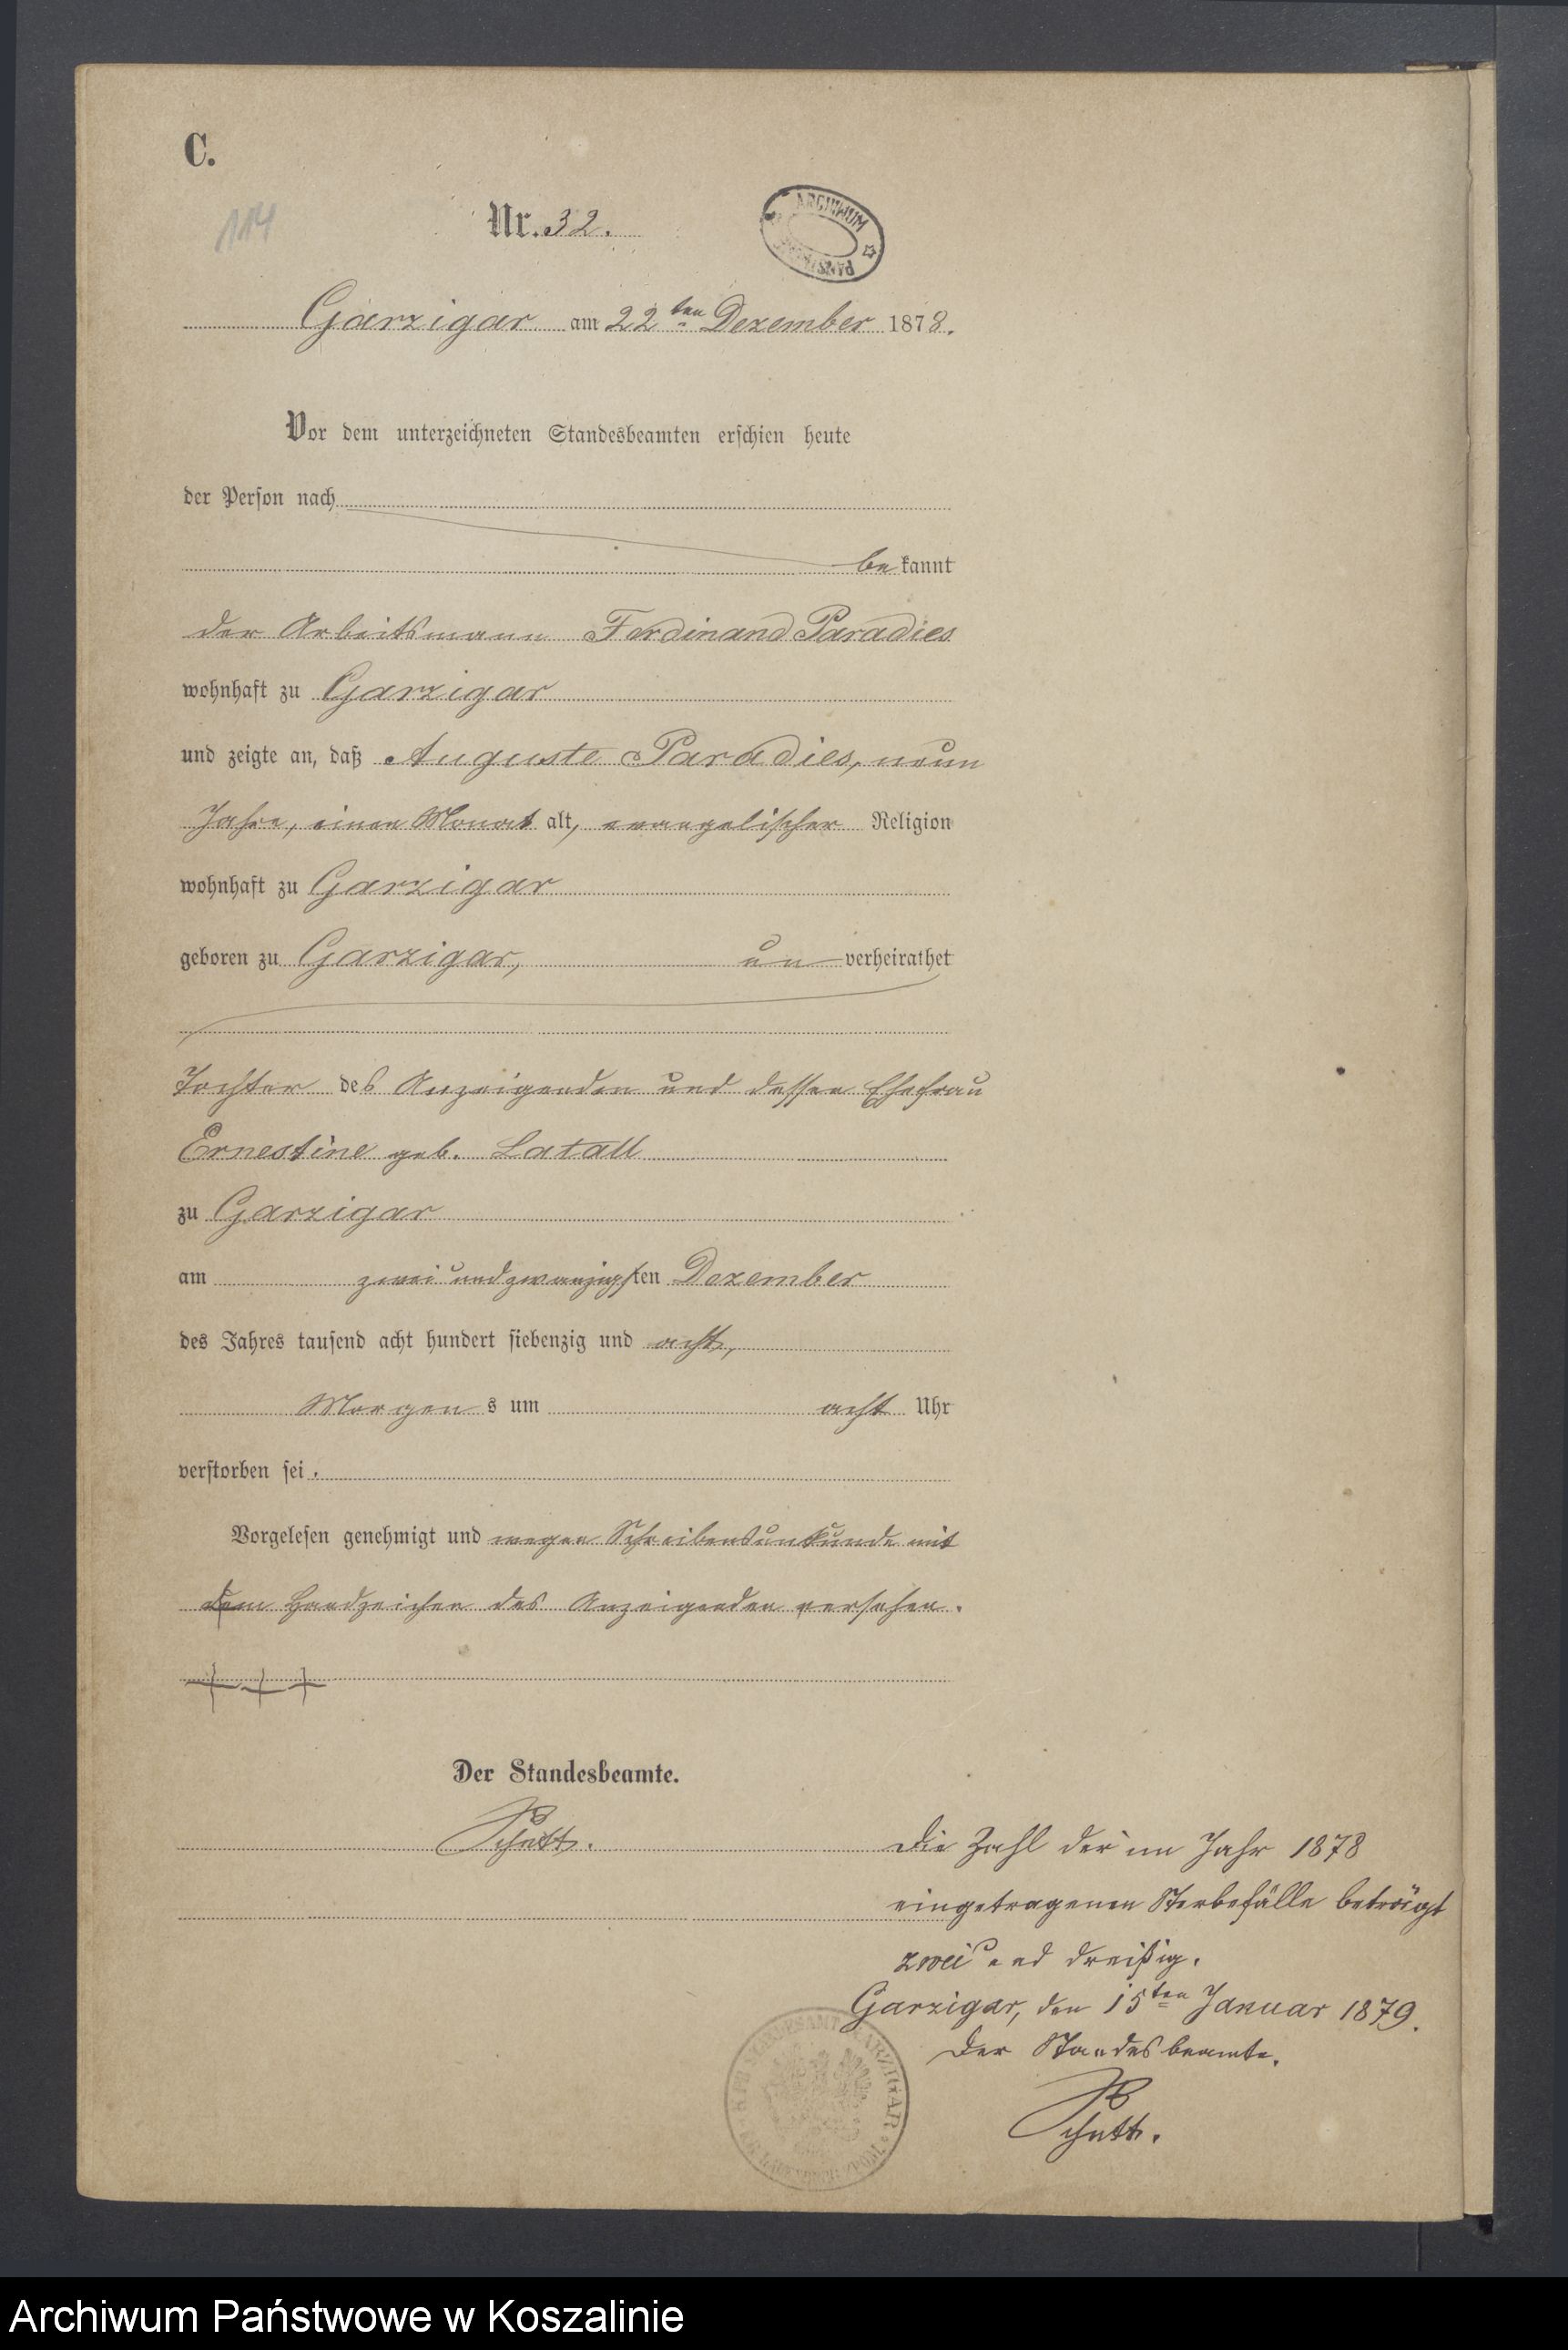 C.
114
Nr. 32.
ARCHIWUM
Garzigar am 22ten Dezember 1878.
Vor dem unterzeichneten Standesbeamten erschien heute
der Person nach
bekannt
der Arbeitsmann Ferdinand Paradies
wohnhaft zu Garzigar
und zeigte an, daß Auguste Paradies, neun
Jahre, einen Monat alt, evangelischer Religion
wohnhaft zu Garzigar
geboren zu Garzigar, unverheirathet
Tochter des Anzeigenden und dessen Ehefrau
Ernestine geb. Latall
zu Garzigar
am zwei und zwanzigsten Dezember
des Jahres tausend acht hundert siebenzig und acht,
Morgens um acht Uhr
verstorben sei.
Vorgelesen genehmigt und wegen Schreibensunkunde mit
dem Handzeichen des Anzeigenden versehen.
+++
Der Standesbeamte.
Schutt.
Die Zahl der im Jahr 1878
eingetragenen Sterbefälle beträgt
zwei und dreißig.
Garzigar, den 15ten Januar 1879.
Der Standesbeamte.
Schutt.
STANDESAMT GARZIGAR
Archiwum Państwowe w Koszalinie